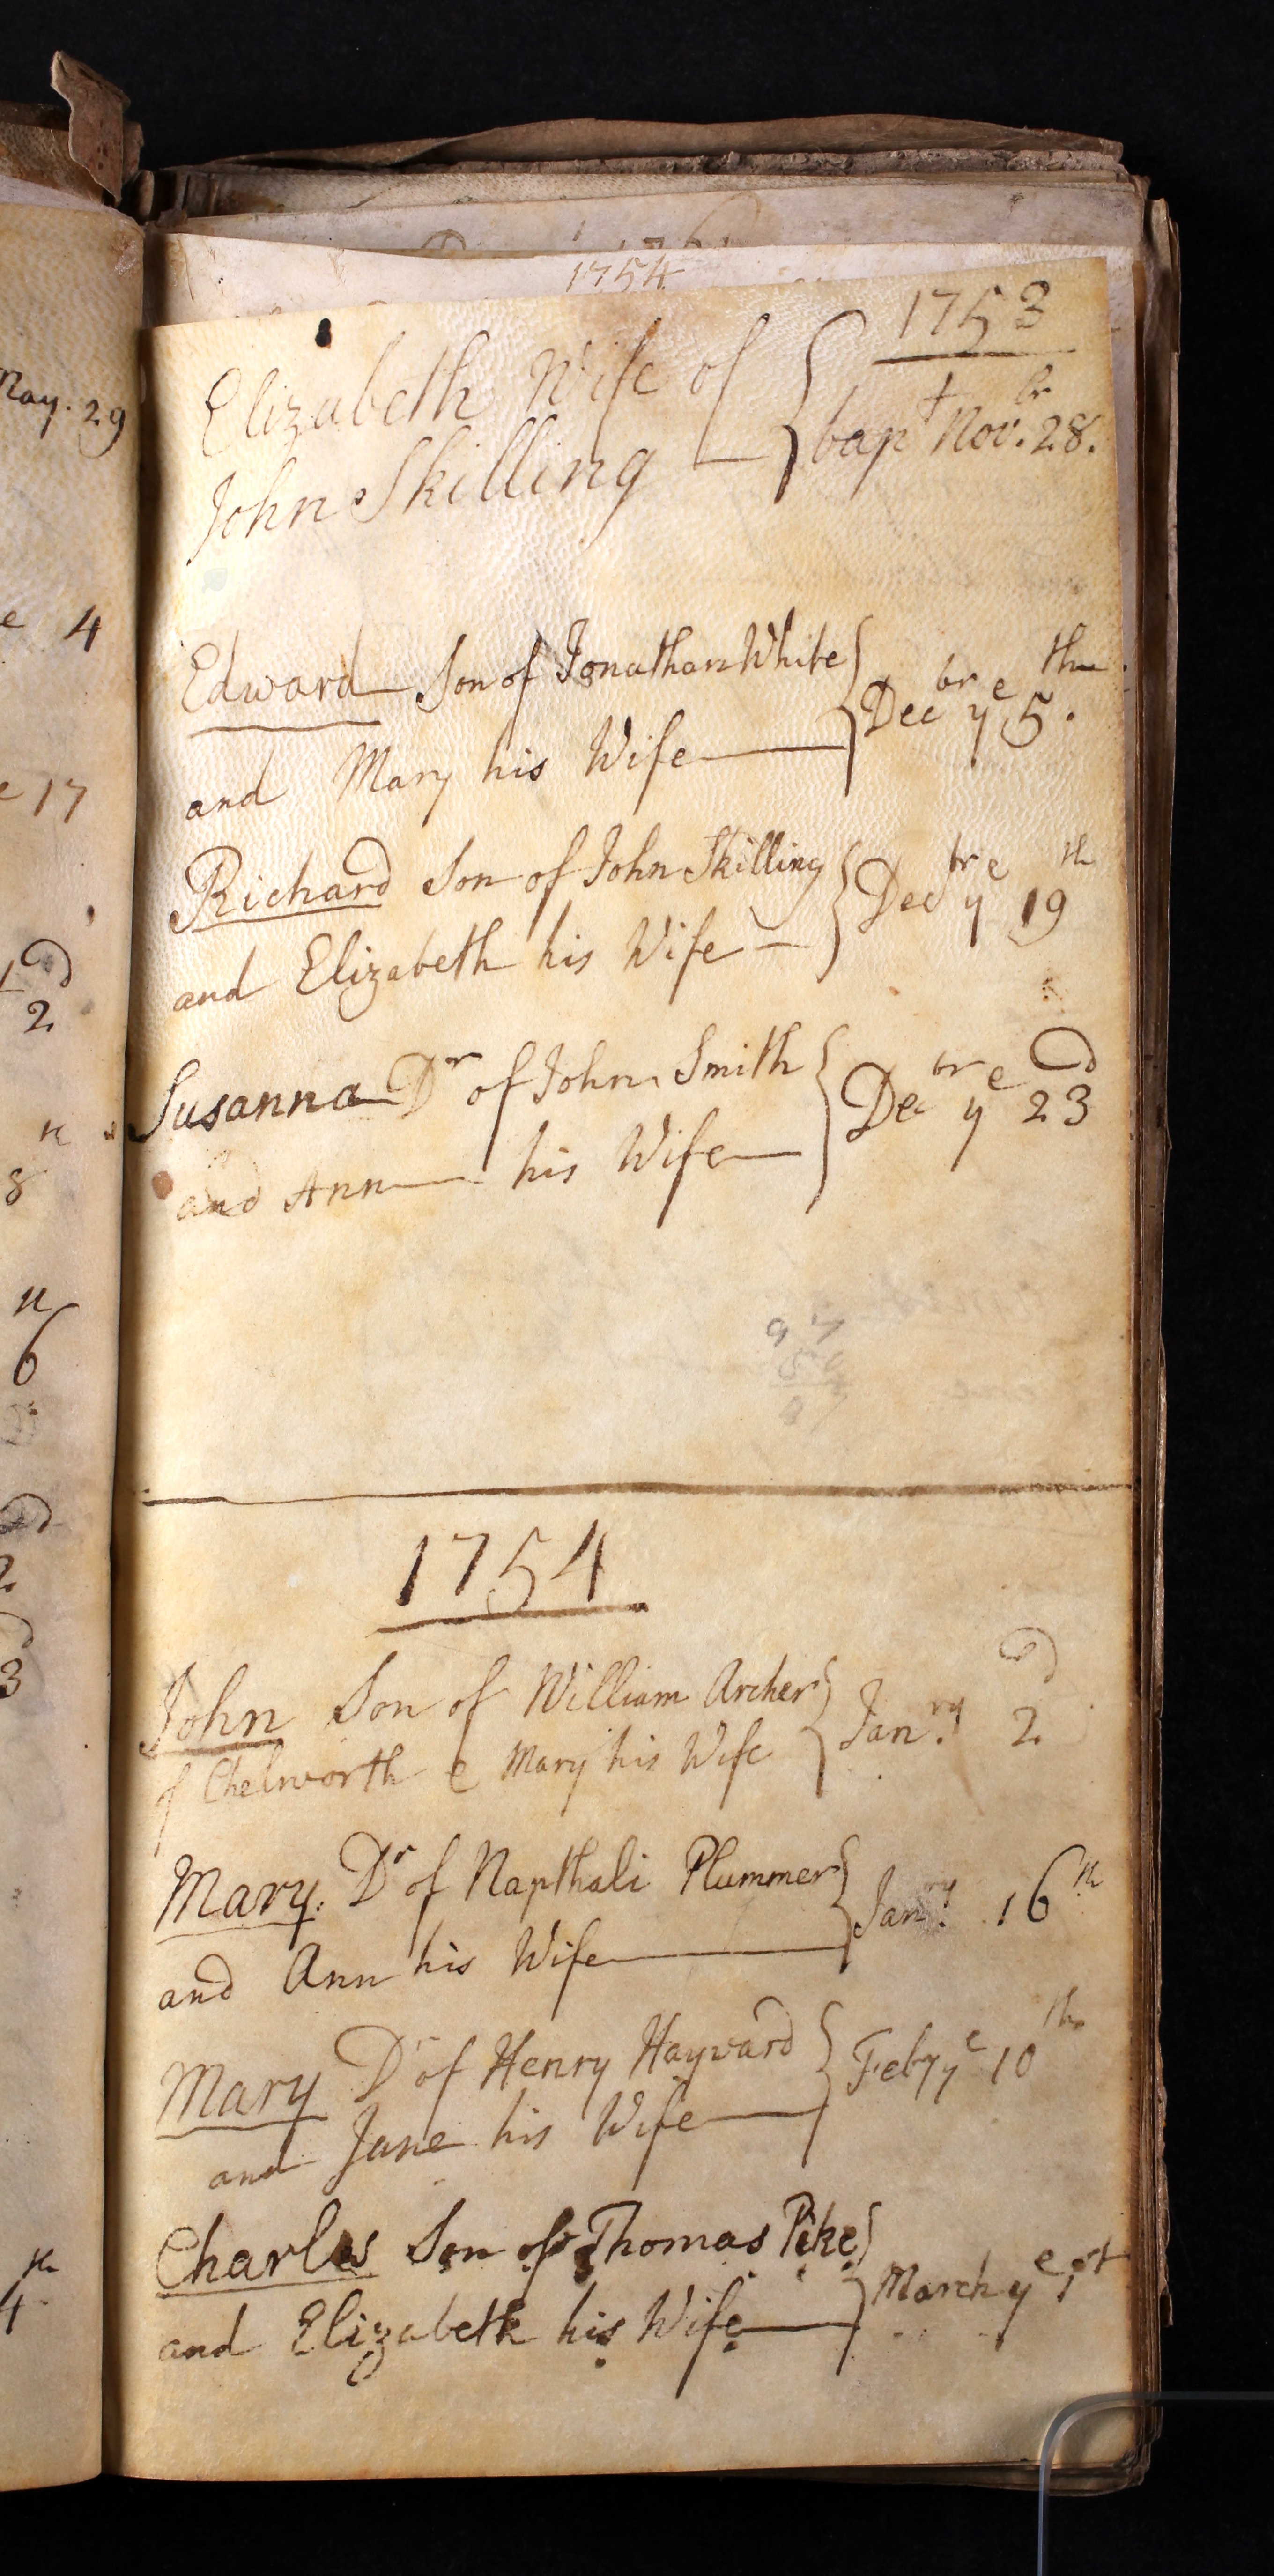 May. 29
e 4
e 17
d
2
8
6
3
4
1754
1753
Elizabeth Wife of
John Skilling — } bapt Novbr. 28.
Edward Son of Jonathan White
and Mary his Wife — } Decbr ye 5th.
Richard Son of John Skilling
and Elizabeth his Wife — } Decbr ye 19th
Susanna Dr of John Smith
and Ann — his Wife — } Decbr ye 23d
1754
John Son of William Archer
of Chelworth & Mary his Wife } Janry. 2d
Mary. Dr of Napthali Plummer
and Ann his Wife — } Janry. 16th
Mary Dr of Henry Hayward
and Jane his Wife — } Feby ye 10th
Charles Son of Thomas Pike
and Elizabeth his Wife — } March ye 1st